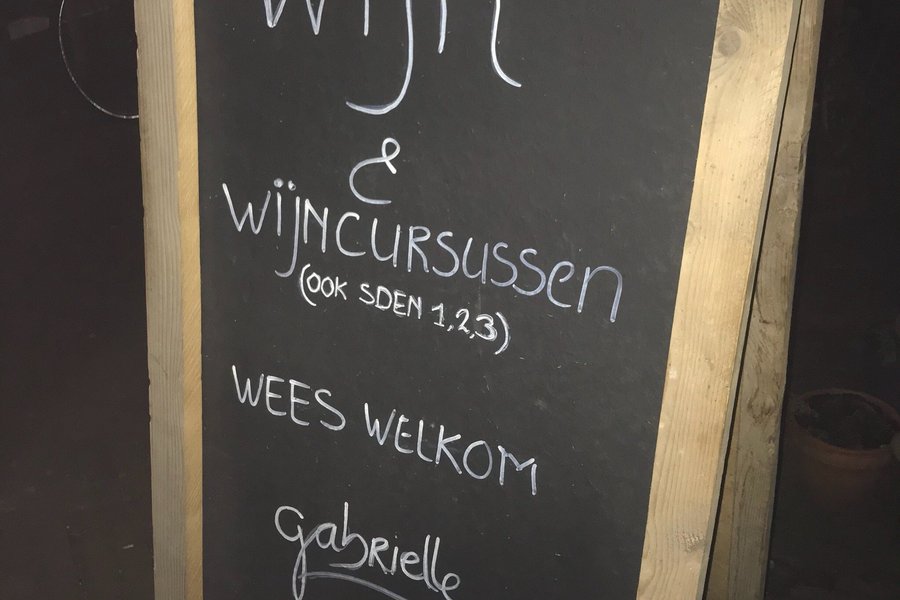 wijn
&
wijncursussen
(OOK SDEN 1,2,3)
WEES WELKOM
gabrielle